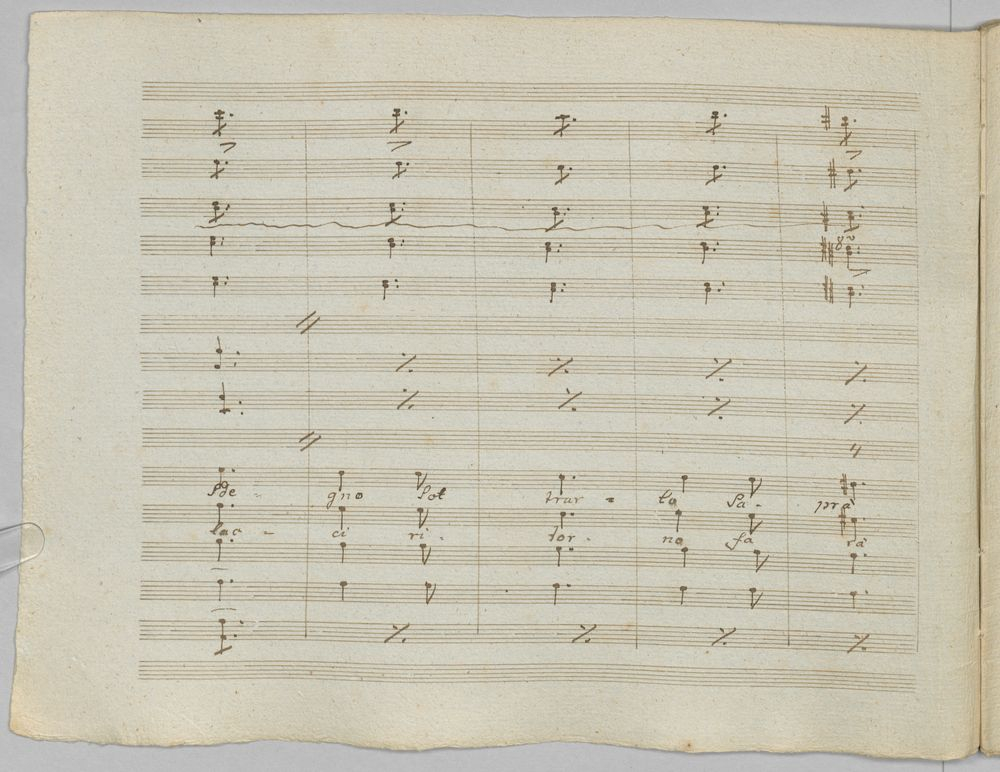 8va
Sde - gno Sot trar = la Sa - prà
lac - ci ri - tor - no fa rà